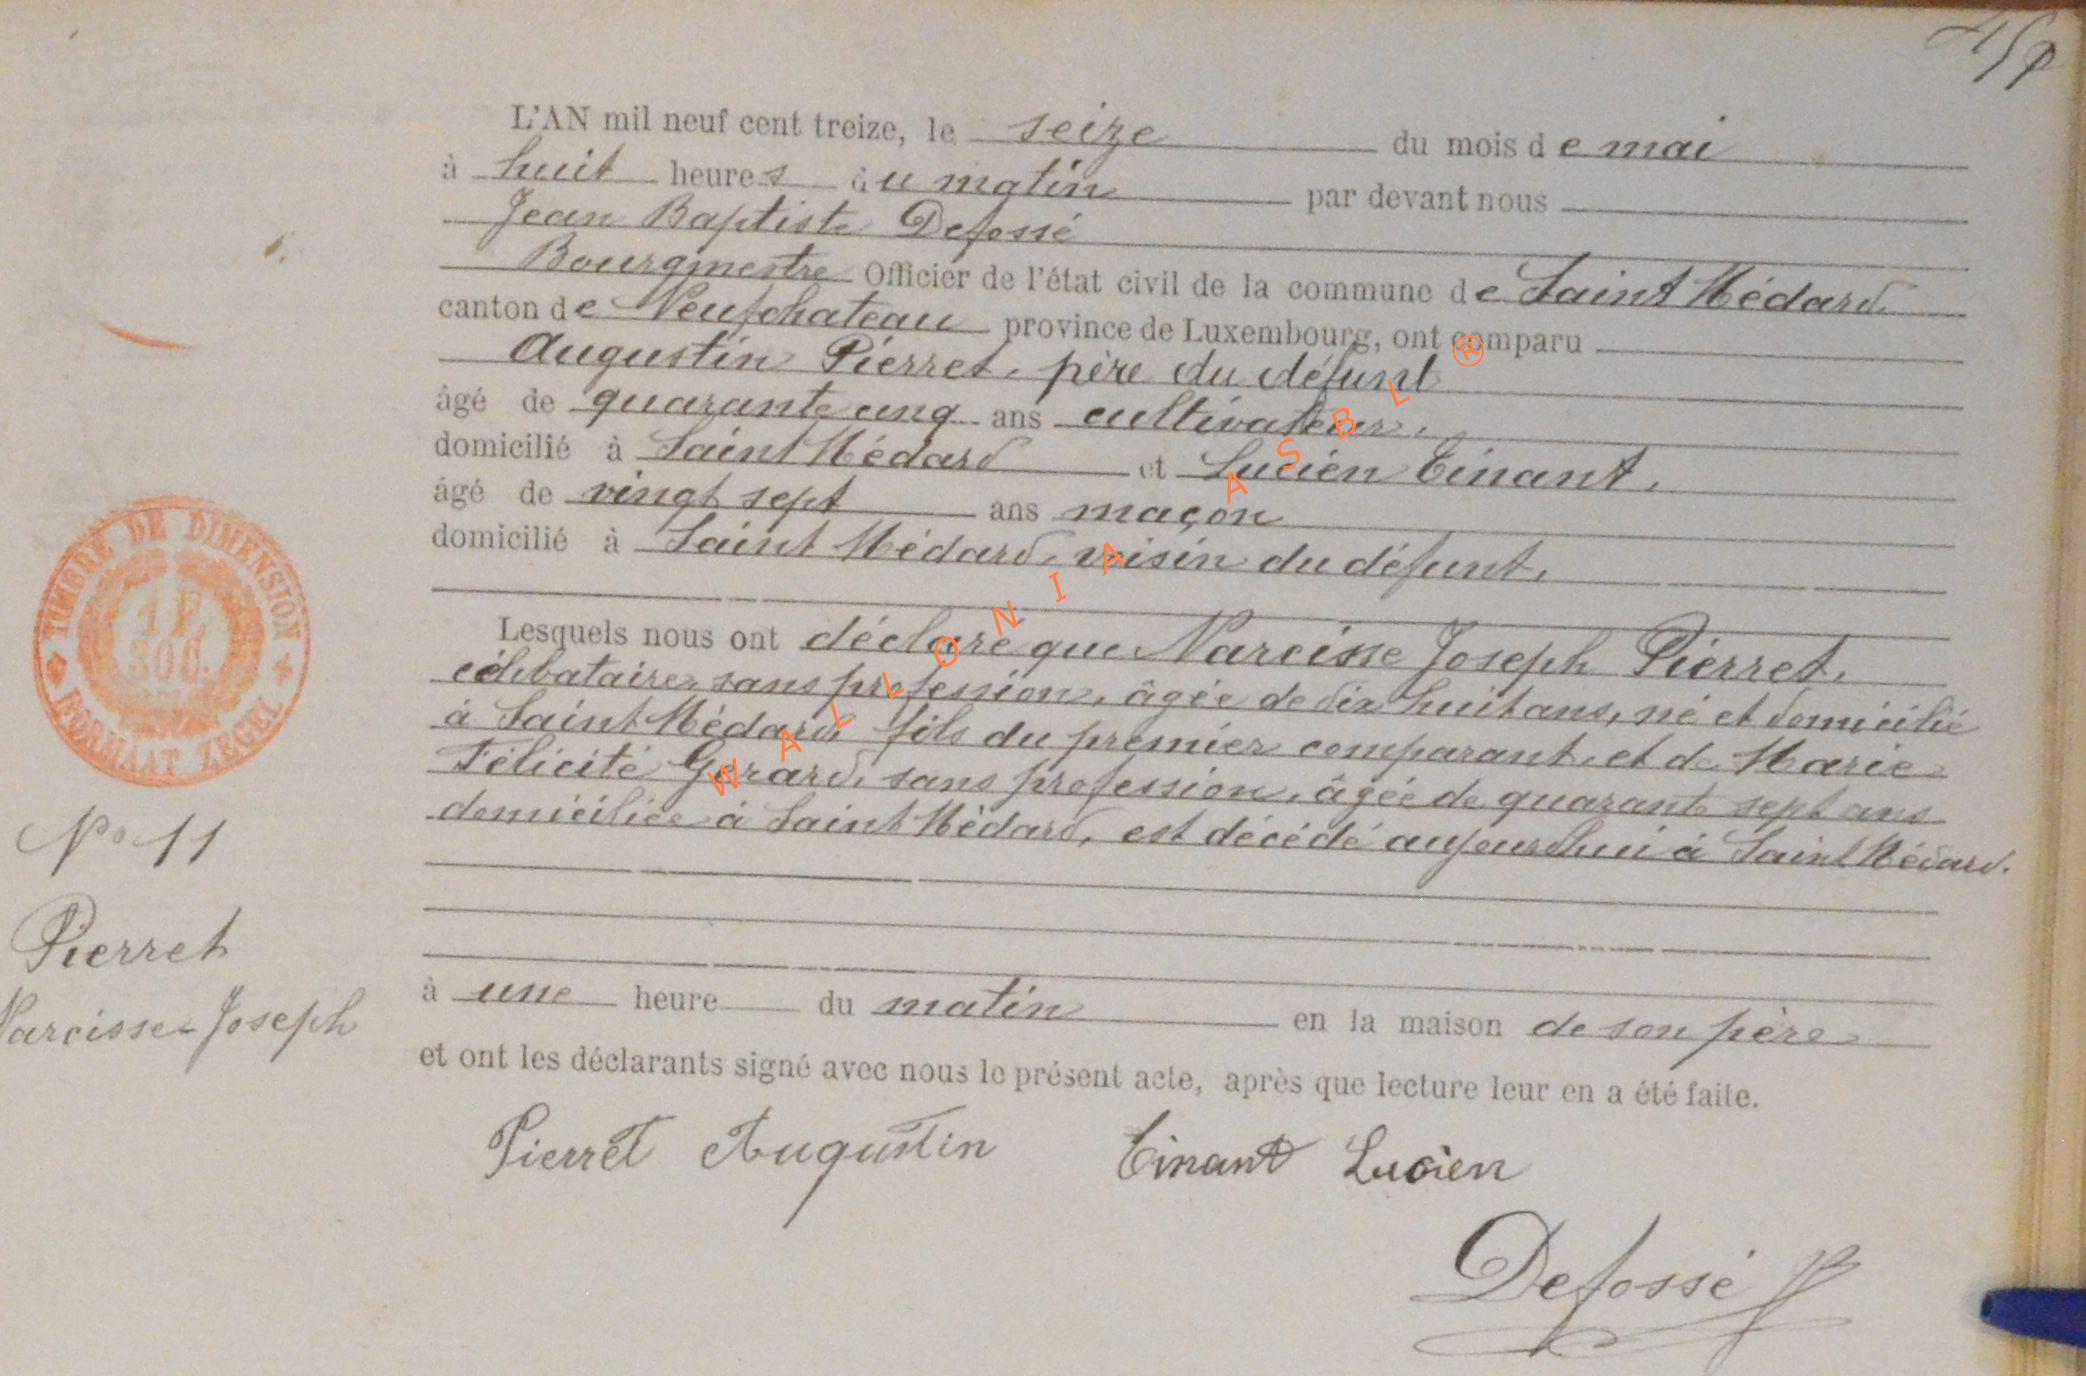 L'AN mil neuf cent treize, le seize du mois de mai
à huit heures du matin par devant nous
Jean Baptiste Defossé
Bourgmestre Officier de l'état civil de la commune de Saint Médard
canton de Neufchateau province de Luxembourg, ont comparu
Augustin Pierret, père du défunt
âgé de quarante cinq ans cultivateur,
domicilié à Saint Médard et Lucien Tinant,
âgé de vingt sept ans maçon
domicilié à Saint Médard, voisin du défunt,
Lesquels nous ont déclaré que Narcisse Joseph Pierret,
célibataire, sans profession, âgée de dix huit ans, né et domicilié
à Saint Médard, fils du premier comparant, et de Marie
Félicité Gerard, sans profession, âgée de quarante sept ans
domiciliée à Saint Médard, est décédé aujourdhui à Saint Médard.
à une heure du matin en la maison de son père
et ont les déclarants signé avec nous le présent acte, après que lecture leur en a été faite.
Pierret Augustin Tinant Lucien
Defossé
TIMBRE DE DIMENSION
1 F.
30 C.
FORMAAT ZEGEL
N° 11
Pierret
Narcisse-Joseph
WALLONIA ASBL ®